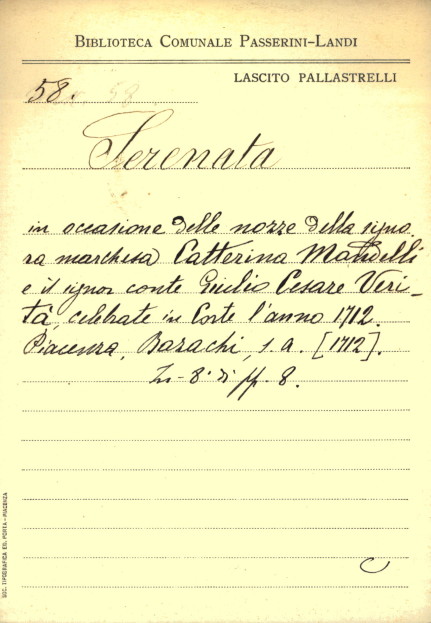 BIBLIOTECA COMUNALE PASSERINI-LANDI
LASCITO PALLASTRELLI
58.
Serenata
in occasione delle nozze della signo
ra marchesa Catterina Mandelli
e il signor conte Giulio Cesare Veri-
tà, celebrate in Corte l'anno 1712.
Piacenza, Bazachi, s. a. [1712].
In-8° di pp. 8.
SOC. TIPOGRAFICA ED. PORTA - PIACENZA
C